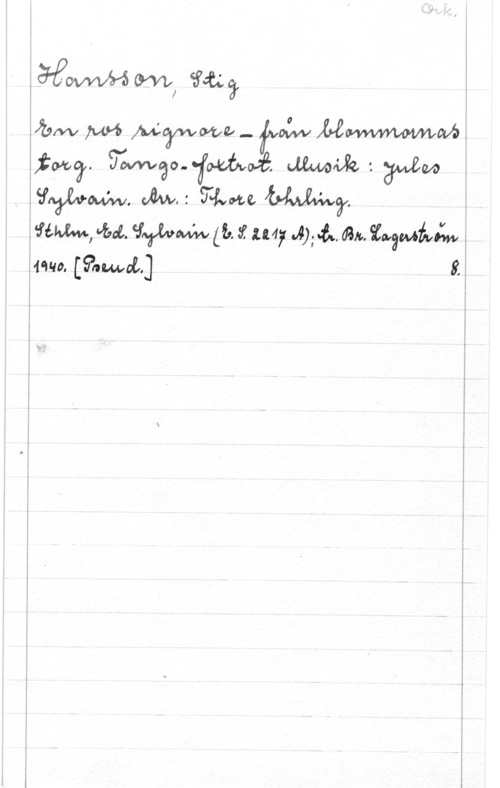 Ork.
Hansson, Stig
En ros signore – från blommornas
torg. Tango-foxtrot. Musik : Jules
Sylvain. Arr. : Thore Ehrling.
Sthlm, Ed. Sylvain (E. S. 2217 A); tr. Br. Lagerström
1940. [Pseud.] 8.